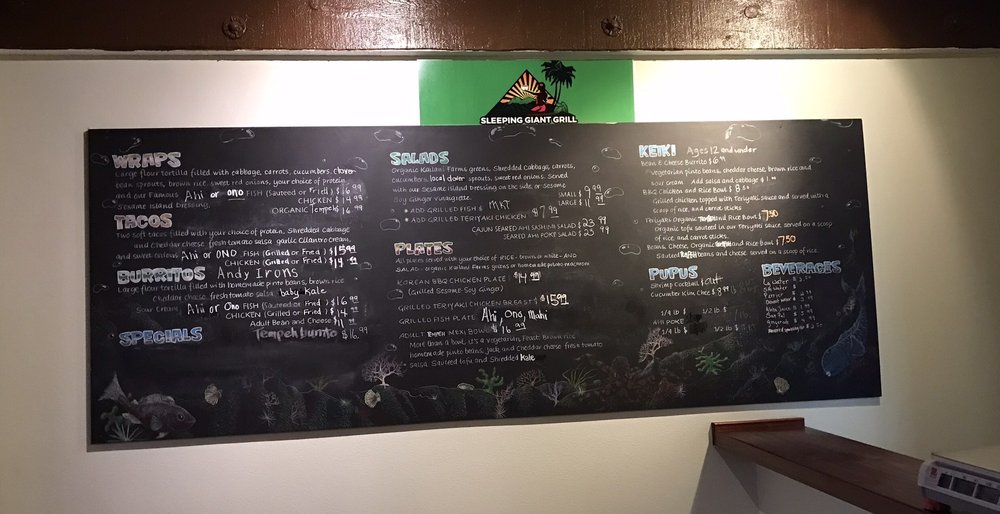 SLEEPING GIANT GRILL
WRAPS
Large flour tortilla filled with cabbage, carrots, cucumbers, clover
bean sprouts, brown rice, sweet red onions, your choice of protein
and our Famous Ahi or ono FISH (Sauteed or Fried) $16.99
Sesame Island dressing. CHICKEN $14.99
ORGANIC Tempeh $16.99
TACOS
Two soft tacos filled with your choice of protein, Shredded Cabbage
and cheddar cheese fresh tomato salsa garlic Cilantro cream,
and sweet onions Ahi or ONO FISH (Grilled or Fried) $15.99
CHICKEN (Grilled or Fried) $14.99
BURRITOS Andy Irons
Large flour tortilla filled with homemade pinto beans, brown rice
cheddar cheese, fresh tomato salsa baby Kale
Sour Cream Ahi or Ono FISH (Sauteed or Fried) $16.99
CHICKEN (Grilled or Fried) $14.99
Adult Bean and Cheese $11.99
Tempeh burrito $16.99
SPECIALS
SALADS
Organic Kailani Farms greens, Shredded Cabbage, carrots,
cucumbers, local clover sprouts, sweet red onions. Served
with our Sesame Island dressing on the side, or Sesame
Soy Ginger vinaigrette. SMALL $9.99
LARGE $11.99
• ADD GRILLED FISH $ MKT
• ADD GRILLED TERIYAKI CHICKEN $7.99
CAJUN SEARED AHI SASHIMI SALAD $23.99
SEARED AHI POKE SALAD $23.99
PLATES
All plates served with your choice of RICE - brown or white - AND
SALAD - organic Kailani Farms greens or homemade potato macaroni
KOREAN BBQ CHICKEN PLATE $14.99
(Grilled Sesame Soy Ginger)
GRILLED TERIYAKI CHICKEN BREAST $15.99
GRILLED FISH PLATE Ahi, Ono, Mahi
ADULT TEMPEH MEXI BOWL $16.99
More than a bowl, it's a vegetarian Feast. Brown rice
homemade pinto beans, jack and cheddar cheese fresh tomato
salsa. Sauteed tofu and Shredded Kale
KEIKI Ages 12 and under
Bean & Cheese Burrito $6.99
Vegetarian pinto beans, cheddar cheese, brown rice and
sour cream Add salsa and cabbage $1.00
BBQ Chicken and Rice Bowl $8.50
Grilled chicken topped with Teriyaki Sauce and served with a
scoop of rice, and carrot sticks
Teriyaki Organic and Rice Bowl $7.50
Organic tofu sauteed in our Teriyaki sauce served on a scoop
of rice, and carrot sticks.
Beans, Cheese, Organic and Rice Bowl $7.50
Sauteed beans and cheese, served on a scoop of rice.
PUPUS
Shrimp Cocktail out
Cucumber Kim Chee $8.99
1/4 lb 1/2 lb
AHI POKE
1/4 lb 1/2 lb
BEVERAGES